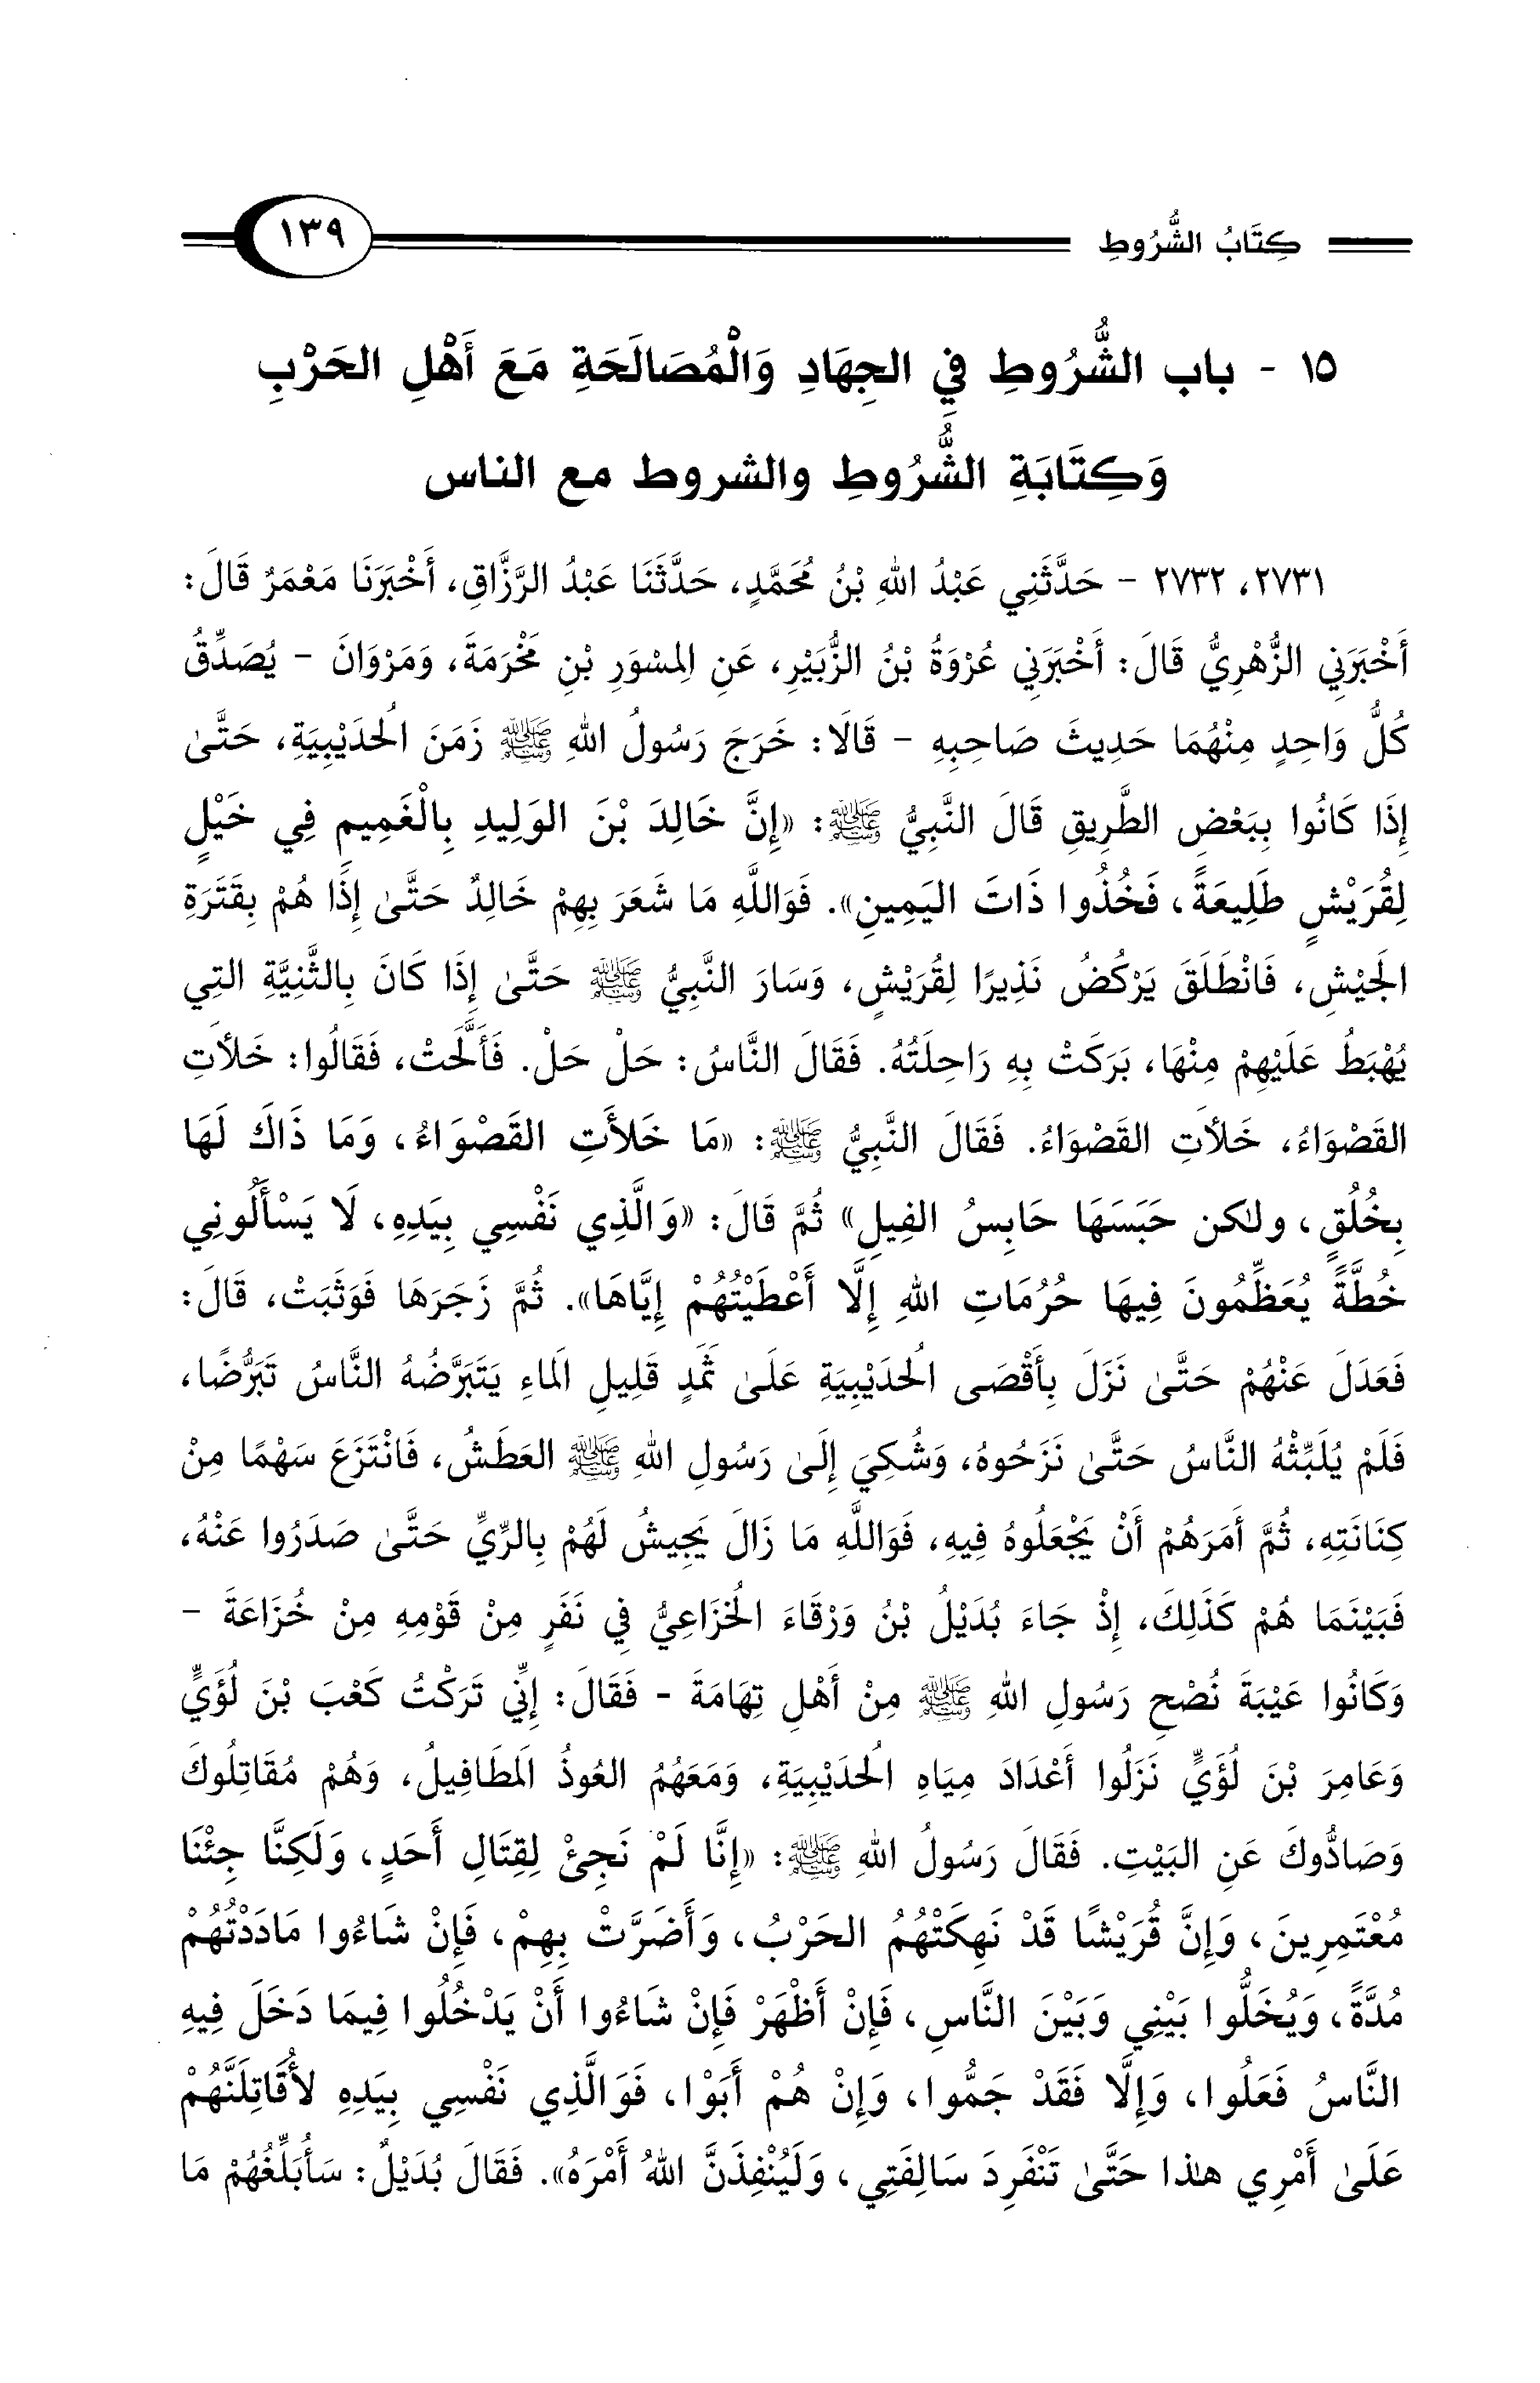 كِتَابُ الشُّرُوطِ ١٣٩
١٥ - باب الشُّرُوطِ فِي الجِهَادِ وَالْمُصَالَحَةِ مَعَ أَهْلِ الحَرْبِ
وَكِتَابَةِ الشُّرُوطِ والشروط مع الناس
٢٧٣١، ٢٧٣٢ - حَدَّثَنِي عَبْدُ اللهِ بْنُ مُحَمَّدٍ، حَدَّثَنَا عَبْدُ الرَّزَّاقِ، أَخْبَرَنَا مَعْمَرٌ قَالَ:
أَخْبَرَنِي الزُّهْرِيُّ قَالَ: أَخْبَرَنِي عُرْوَةُ بْنُ الزُّبَيْرِ، عَنِ المِسْوَرِ بْنِ مَخْرَمَةَ، وَمَرْوَانَ - يُصَدِّقُ
كُلُّ وَاحِدٍ مِنْهُمَا حَدِيثَ صَاحِبِهِ - قَالَا: خَرَجَ رَسُولُ اللهِ ﷺ زَمَنَ الُحدَيْبِيَةِ، حَتَّىٰ
إِذَا كَانُوا بِبَعْضِ الطَّرِيقِ قَالَ النَّبِيُّ ﷺ: «إِنَّ خَالِدَ بْنَ الوَلِيدِ بِالْغَمِيمِ فِي خَيْلٍ
لِقُرَيْشٍ طَلِيعَةً، فَخُذُوا ذَاتَ اليَمِينِ». فَوَاللَّهِ مَا شَعَرَ بِهِمْ خَالِدٌ حَتَّىٰ إِذَا هُمْ بِقَتَرَةِ
الَجيْشِ، فَانْطَلَقَ يَرْكُضُ نَذِيرًا لِقُرَيْشٍ، وَسَارَ النَّبِيُّ ﷺ حَتَّىٰ إِذَا كَانَ بِالثَّنِيَّةِ التِي
يُهْبَطُ عَلَيْهِمْ مِنْهَا، بَرَكَتْ بِهِ رَاحِلَتُهُ. فَقَالَ النَّاسُ: حَلْ حَلْ. فَأَلَّحَتْ، فَقَالُوا: خَلأَتِ
القَصْوَاءُ، خَلأَتِ القَصْوَاءُ. فَقَالَ النَّبِيُّ ﷺ: «مَا خَلأَتِ القَصْوَاءُ، وَمَا ذَاكَ لَهَا
بِخُلُقٍ، ولكن حَبَسَهَا حَابِسُ الفِيلِ» ثُمَّ قَالَ: «وَالَّذِي نَفْسِي بِيَدِهِ، لَا يَسْأَلُونِي
خُطَّةً يُعَظِّمُونَ فِيهَا حُرُمَاتِ اللهِ إِلَّا أَعْطَيْتُهُمْ إِيَّاهَا». ثُمَّ زَجَرَهَا فَوَثَبَتْ، قَالَ:
فَعَدَلَ عَنْهُمْ حَتَّىٰ نَزَلَ بِأَقْصَى الُحدَيْبِيَةِ عَلَىٰ ثَمَدٍ قَلِيلِ الَماءِ يَتَبَرَّضُهُ النَّاسُ تَبَرُّضًا،
فَلَمْ يُلَبِّثْهُ النَّاسُ حَتَّىٰ نَزَحُوهُ، وَشُكِيَ إِلَىٰ رَسُولِ اللهِ ﷺ العَطَشُ، فَانْتَزَعَ سَهْمًا مِنْ
كِنَانَتِهِ، ثُمَّ أَمَرَهُمْ أَنْ يَجْعَلُوهُ فِيهِ، فَوَاللَّهِ مَا زَالَ يَجِيشُ لَهُمْ بِالرِّيِّ حَتَّىٰ صَدَرُوا عَنْهُ،
فَبَيْنَمَا هُمْ كَذَلِكَ، إِذْ جَاءَ بُدَيْلُ بْنُ وَرْقَاءَ الُخزَاعِيُّ فِي نَفَرٍ مِنْ قَوْمِهِ مِنْ خُزَاعَةَ -
وَكَانُوا عَيْبَةَ نُصْحِ رَسُولِ اللهِ ﷺ مِنْ أَهْلِ تِهَامَةَ - فَقَالَ: إِنِّي تَرَكْتُ كَعْبَ بْنَ لُؤَيٍّ
وَعَامِرَ بْنَ لُؤَيٍّ نَزَلُوا أَعْدَادَ مِيَاهِ الُحدَيْبِيَةِ، وَمَعَهُمُ العُوذُ الَمطَافِيلُ، وَهُمْ مُقَاتِلُوكَ
وَصَادُّوكَ عَنِ البَيْتِ. فَقَالَ رَسُولُ اللهِ ﷺ: «إِنَّا لَمْ نَجِئْ لِقِتَالِ أَحَدٍ، وَلَكِنَّا جِئْنَا
مُعْتَمِرِينَ، وَإِنَّ قُرَيْشًا قَدْ نَهِكَتْهُمُ الحَرْبُ، وَأَضَرَّتْ بِهِمْ، فَإِنْ شَاءُوا مَادَدْتُهُمْ
مُدَّةً، وَيُخَلُّوا بَيْنِي وَبَيْنَ النَّاسِ، فَإِنْ أَظْهَرْ فَإِنْ شَاءُوا أَنْ يَدْخُلُوا فِيمَا دَخَلَ فِيهِ
النَّاسُ فَعَلُوا، وَإِلَّا فَقَدْ جَمُّوا، وَإِنْ هُمْ أَبَوْا، فَوَالَّذِي نَفْسِي بِيَدِهِ لأُقَاتِلَنَّهُمْ
عَلَىٰ أَمْرِي هذا حَتَّىٰ تَنْفَرِدَ سَالِفَتِي، وَلَيُنْفِذَنَّ اللهُ أَمْرَهُ». فَقَالَ بُدَيْلٌ: سَأُبَلِّغُهُمْ مَا